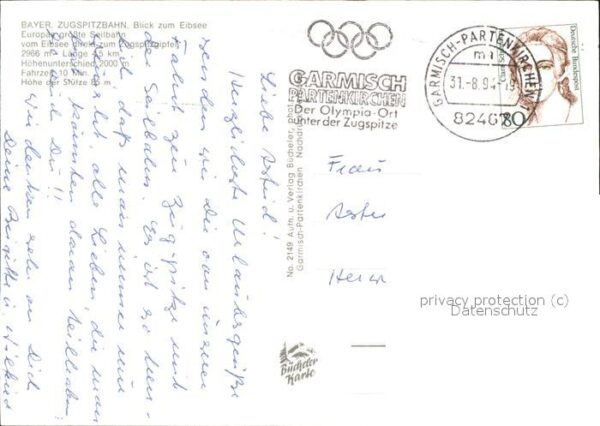 BAYER. ZUGSPITZBAHN, Blick zum Eibsee
Europas größte Seilbahn
vom Eibsee direkt zum Zugspitzgipfel
2966 m - Länge 4,5 km
Höhenunterschied 2000 m
Fahrzeit 10 Min.
Höhe der Stütze 85 m
Liebe Astrid!
Herzlichste Urlaubsgrüße
senden wir Dir von unserer
Fahrt zur Zugspitze mit
der Seilbahn. Es ist so
daß man immer nur
alle Lieben, die man
könnten daran teilhaben,
auch Du!!
Wir denken sehr an Dich
Deine Brigitte u. Wilfried
No. 2149 Aufn. u. Verlag Bücheler,
Garmisch-Partenkirchen
Bücheler
Karte
GARMISCH
PARTENKIRCHEN
Der Olympia-Ort
unter der Zugspitze
GARMISCH-PARTENKIRCHEN 1
mi
31.-8.94-19
82467
Deutsche Bundespost
80
Frau
privacy protection (c)
Datenschutz